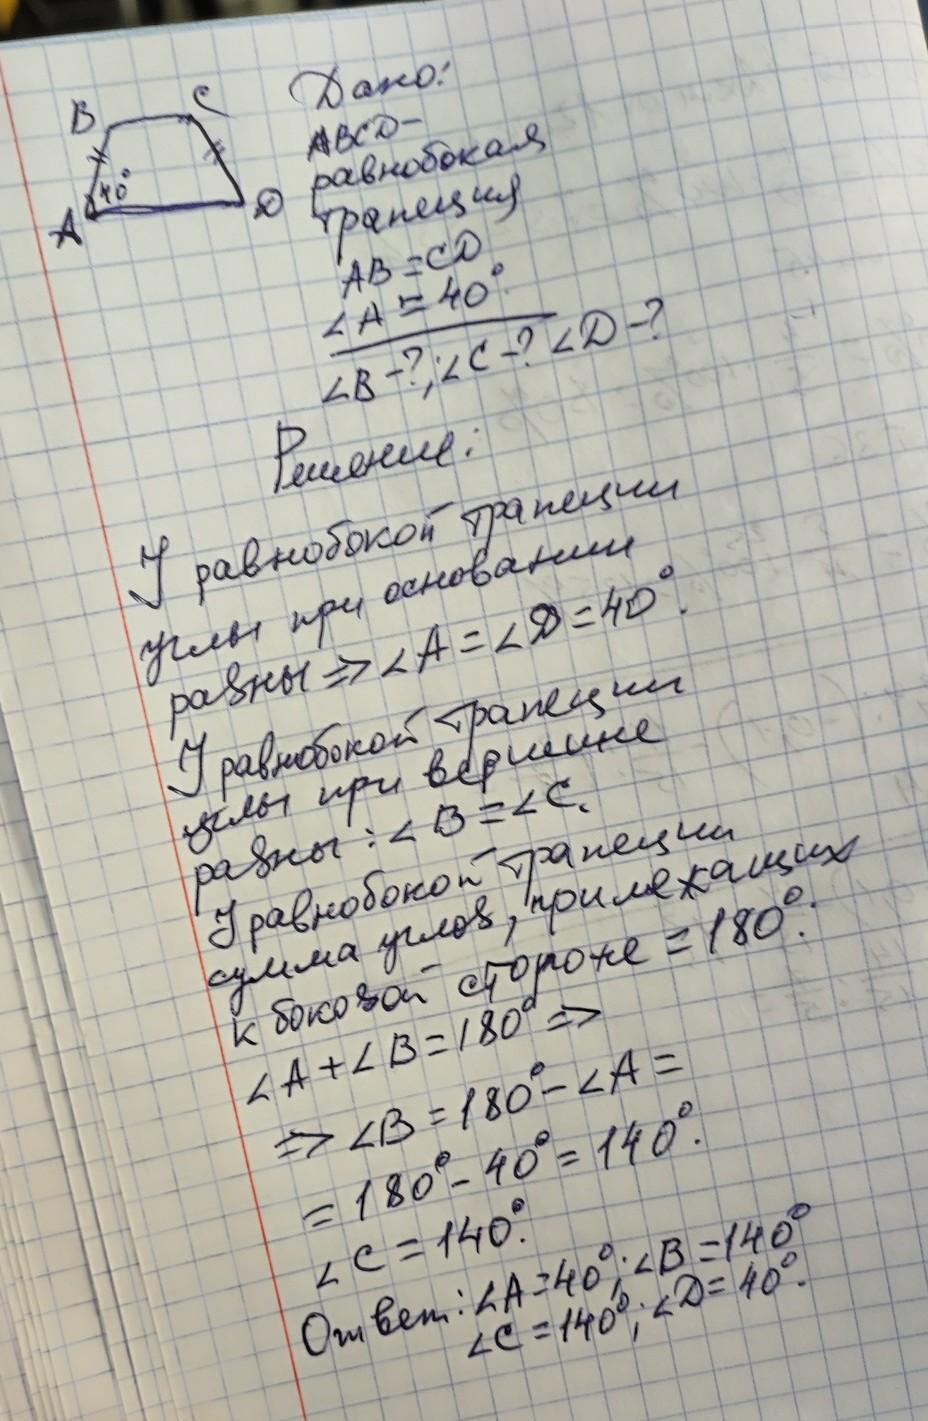 B
C
40°
A
D
Дано:
ABCD-
равнобокая
трапеция
AB = CD
∠A = 40°.
∠B-?; ∠C-? ∠D-?
Решение:
У равнобокой трапеции
углы при основании
равны => ∠A = ∠D = 40°.
У равнобокой трапеции
углы при вершине
равны: ∠B = ∠C.
У равнобокой трапеции
сумма углов, прилежащих
к боковой стороне = 180°:
∠A + ∠B = 180° =>
=> ∠B = 180° - ∠A =
= 180° - 40° = 140°.
∠C = 140°.
Ответ: ∠A = 40°; ∠B = 140°
∠C = 140°; ∠D = 40°.